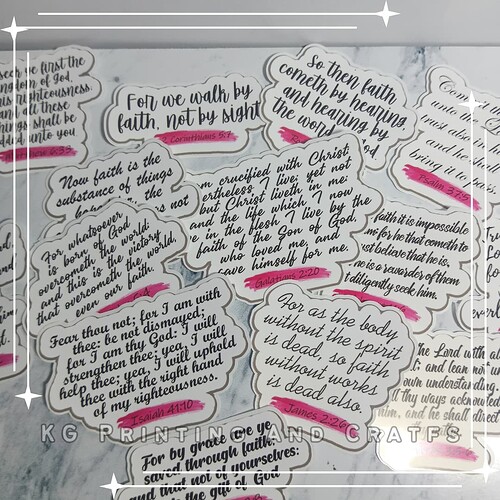 seek ye first the
kingdom of God,
his righteousness;
and all these
things shall be
added unto you
6:33
For we walk by
faith, not by sight
2 Corinthians 5:7
So then faith
cometh by hearing
and hearing by
the word God
unto the
trust also
and he sha
bring it to pas
Psalm 37:5
Now faith is the
substance of things
not
For whatsoever
is born of God
overcometh the world:
and this is the victory
that overcometh the world,
even our faith.
m crucified with Christ,
ertheless, I live, yet not
but Christ liveth in me:
and the life which I now
e in the flesh I live by the
faith of the Son of God,
who loved me, and
gave himself for me.
Galatians 2:20
faith it is impossible
m: for he that cometh to
st believe that he is,
he is a rewarder of them
t diligently seek him.
Fear thou not; for I am with
thee: be not dismayed;
for I am thy God: I will
strengthen thee; yea, I will
help thee; yea, I will uphold
thee with the right hand
of my righteousness.
Isaiah 41:10
For as the body
without the spirit
is dead, so faith
without works
is dead also.
James 2:26
the Lord with a
and lean not u
own understanding.
all thy ways acknowled
him, and he shall direct
KG Printing and Cratfs
For by grace are ye
saved through faith;
and that not of yourselves:
is the gift of God